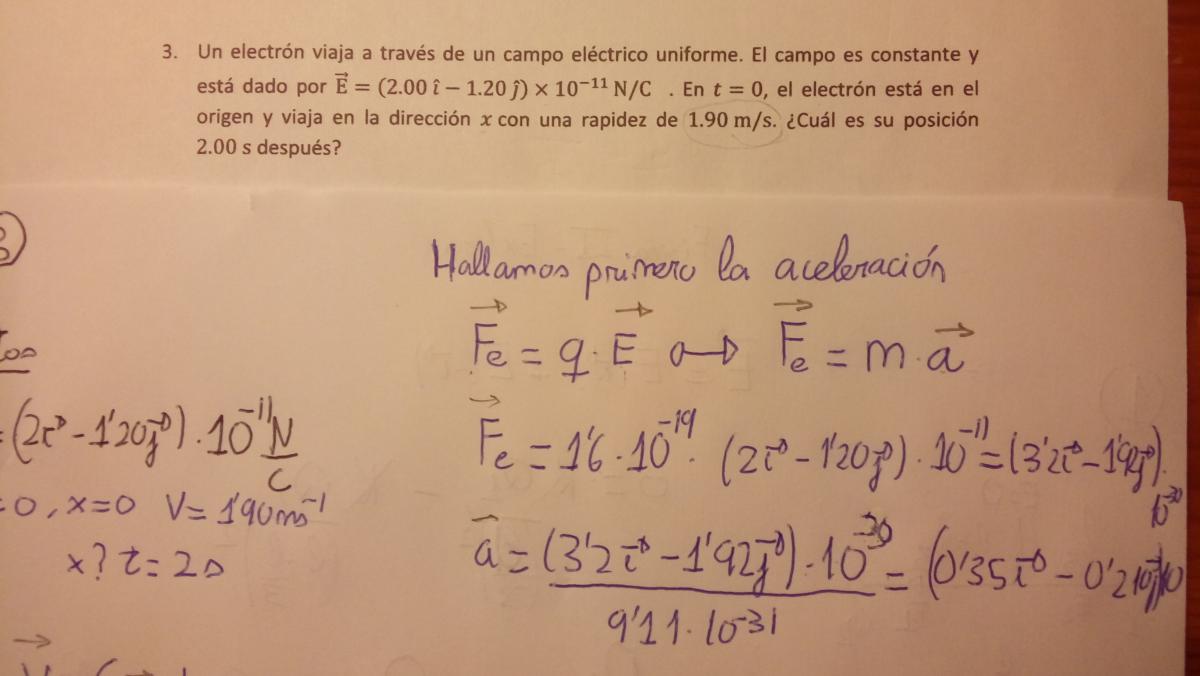 3. Un electrón viaja a través de un campo eléctrico uniforme. El campo es constante y
está dado por E⃗ = (2.00 î − 1.20 ĵ) × 10⁻¹¹ N/C . En t = 0, el electrón está en el
origen y viaja en la dirección x con una rapidez de 1.90 m/s. ¿Cuál es su posición
2.00 s después?
Hallamos primero la aceleración
F⃗e = q · E⃗ → F⃗e = m · a⃗
= (2i⃗ - 1'20j⃗) · 10⁻¹¹ N/C
F⃗e = 1'6 · 10⁻¹⁹ · (2i⃗ - 1'20j⃗) · 10⁻¹¹ = (3'2i⃗ - 1'92j⃗) · 10⁻³⁰
=0, x=0 V= 1'90ms⁻¹
x? t= 2s
a⃗ = (3'2i⃗ - 1'92j⃗) · 10⁻³⁰ / 9'11 · 10⁻³¹ = (0'35i⃗ - 0'21